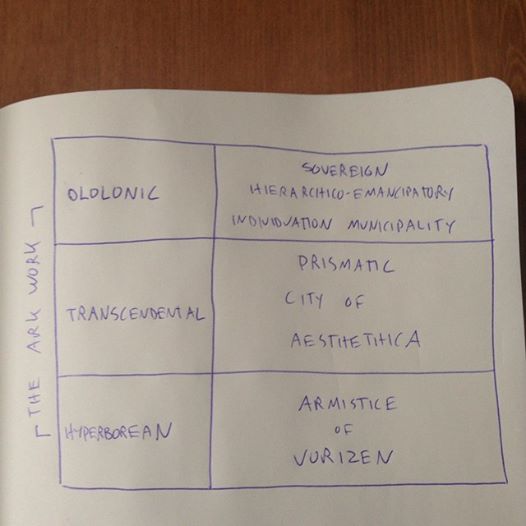 THE ARK WORK
OLOLONIC
SOVEREIGN
HIERARCHICO-EMANCIPATORY
INDIVIDUATION MUNICIPALITY
TRANSCENDENTAL
PRISMATIC
CITY OF
AESTHETHICA
HYPERBOREAN
ARMISTICE
OF
VURIZEN